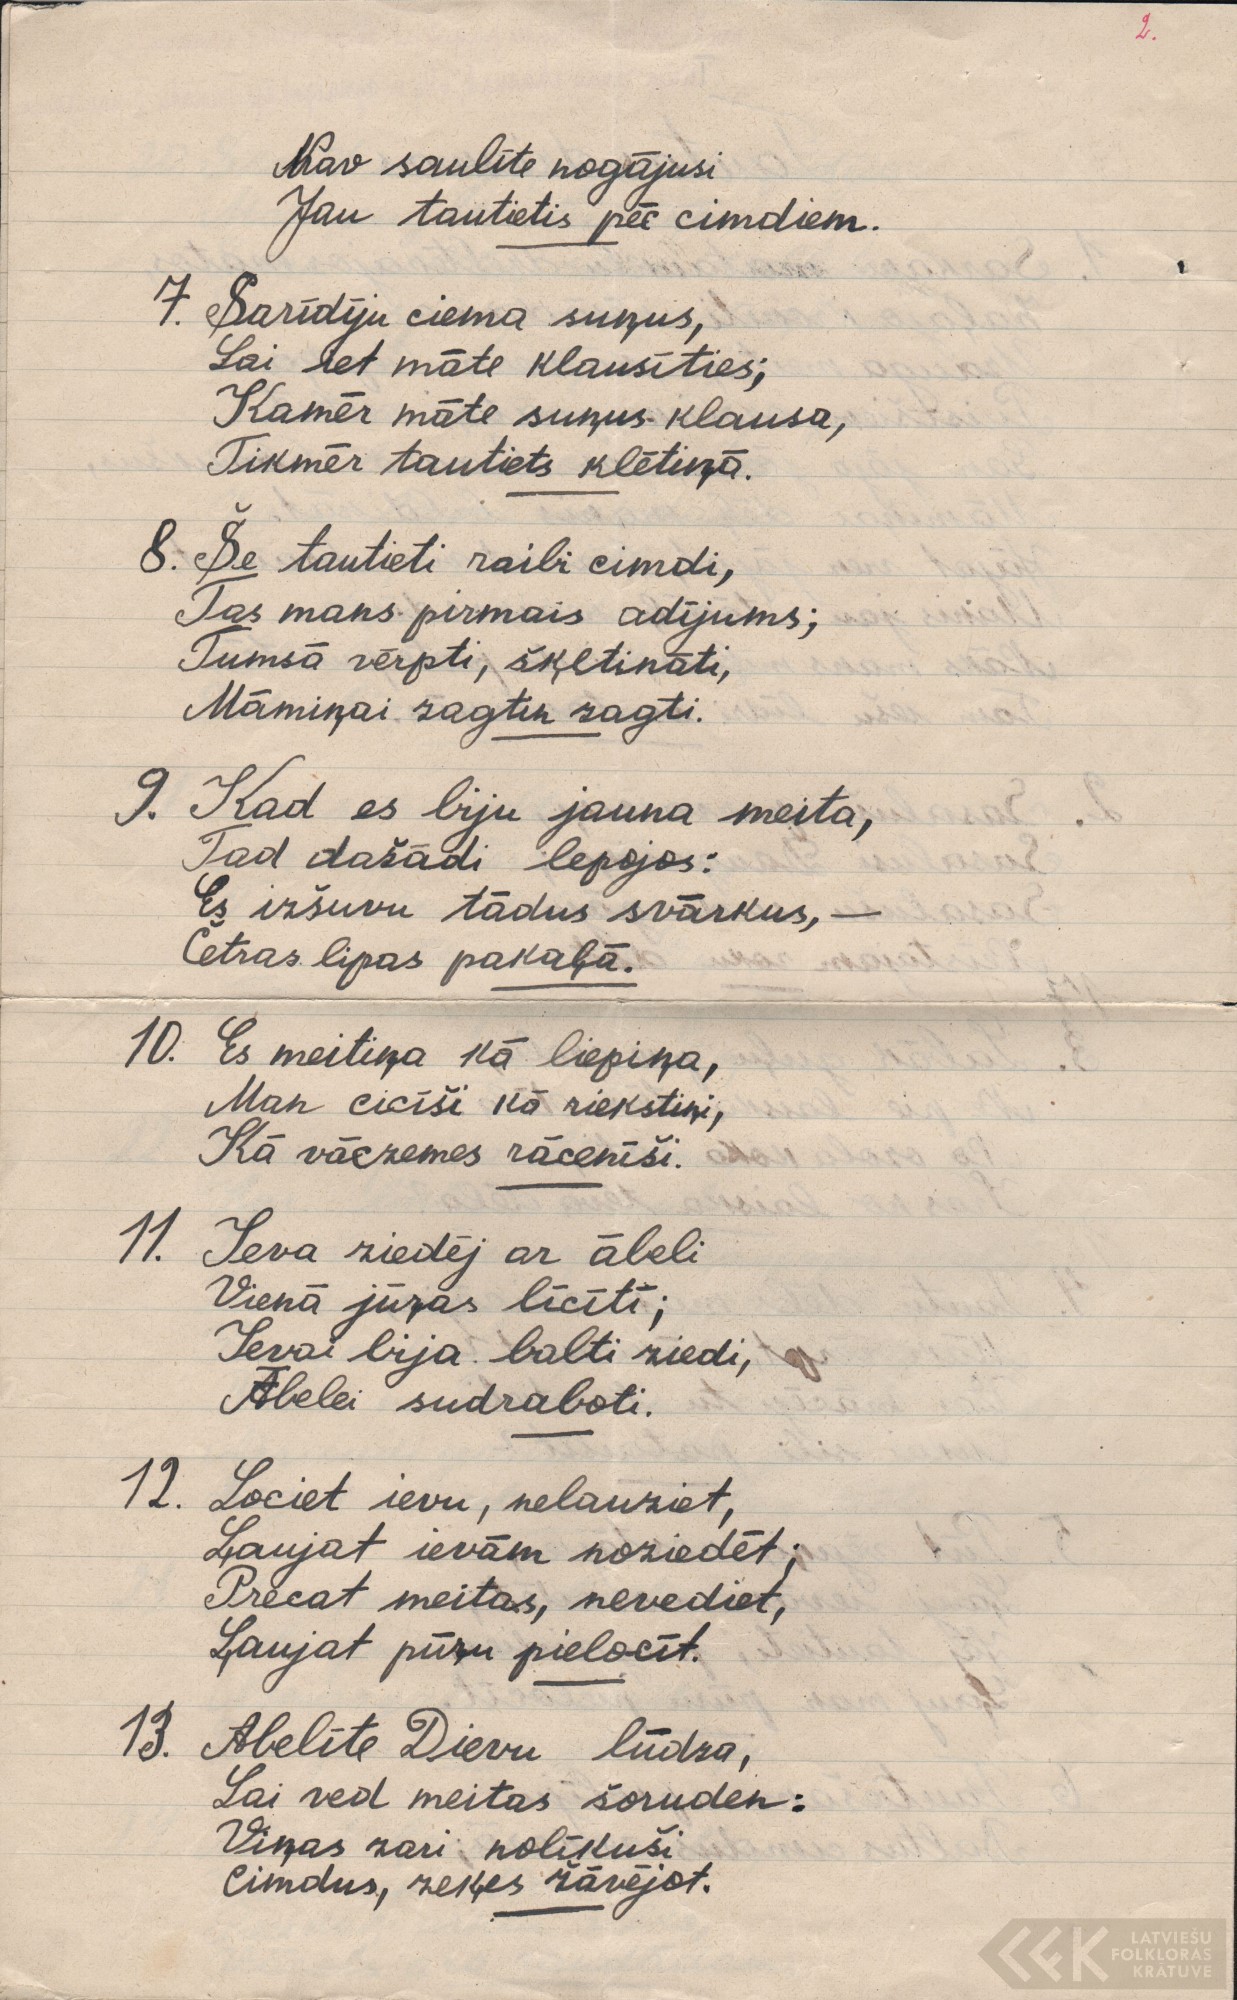 2.
Nav saulīte nogājusi
Jau tautietis pēc cimdiem.
7. Sarīdīju ciema suņus,
Lai iet māte klausīties;
Kamēr māte suņus klausa,
Tikmēr tautiets klētiņā.
8. Še tautieti raibi cimdi,
Tas mans pirmais adījums;
Tumsā vērpti, šķetināti,
Māmiņai zagtin zagti.
9. Kad es biju jauna meita,
Tad dažādi lepojos:
Es izšuvu tādus svārkus, —
Četras lipas pakaļā.
10. Es meitiņa kā liepiņa,
Man cicīši kā riekstiņi,
Kā vāczemes rācenīši.
11. Ieva ziedēj ar ābeli
Vienā jūŗas līcītī;
Ievai bija balti ziedi,
Ābelei sudraboti.
12. Lociet ievu, nelauziet,
Ļaujat ievām noziedēt;
Precat meitas, nevediet,
Ļaujat pūru pielocīt.
13. Abelīte Dievu lūdza,
Lai ved meitas šoruden:
Viņas zari nolīkuši
Cimdus, zeķes žāvējot.
LATVIEŠU
FOLKLORAS
KRĀTUVE